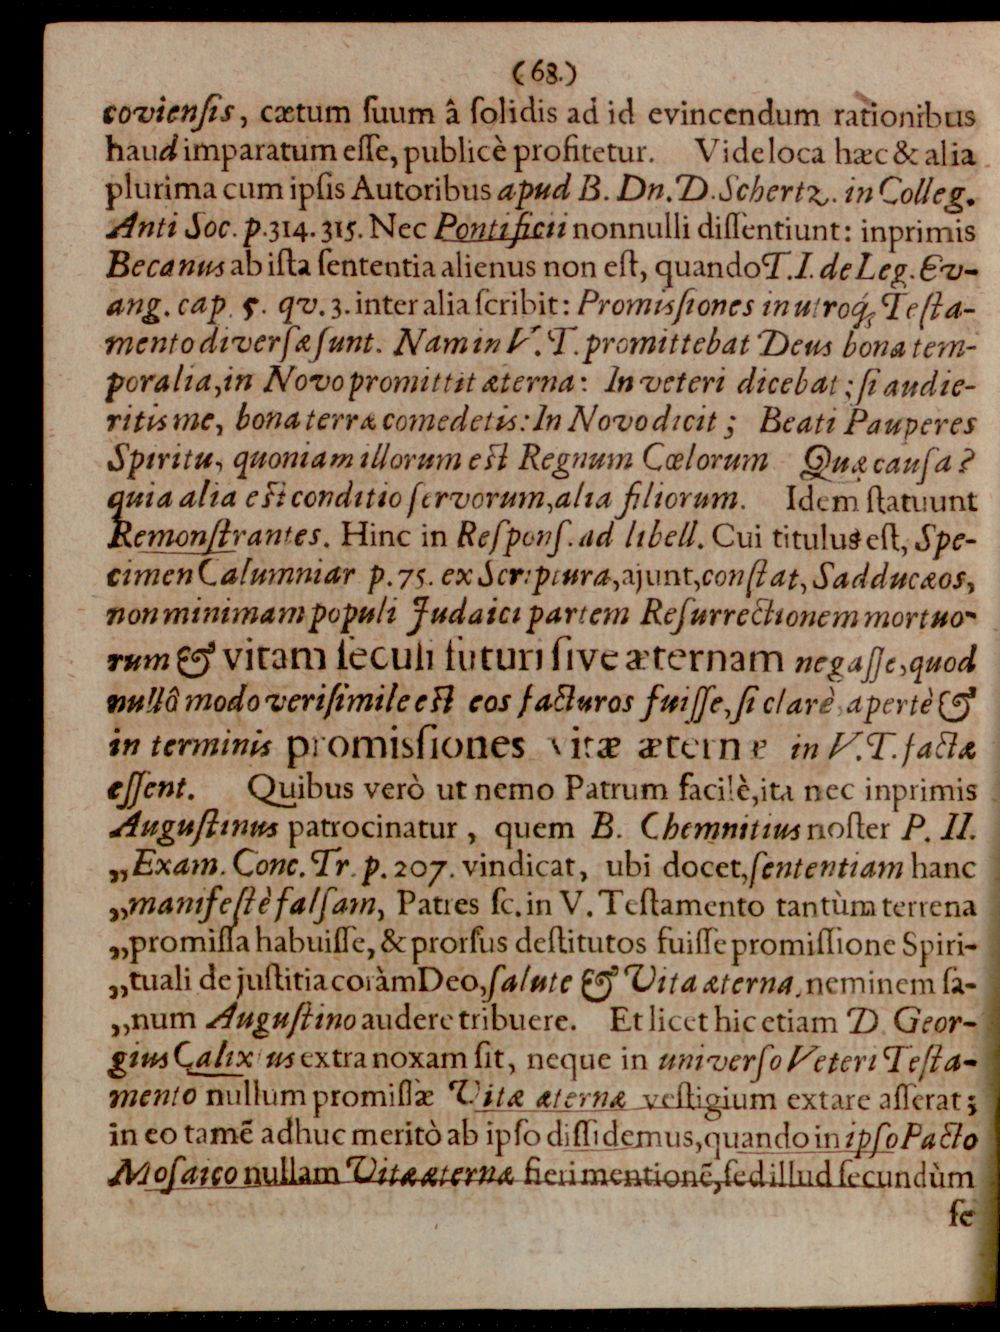 (68.)
coviensis, cætum suum â solidis ad id evincendum rationibus
haud imparatum esse, publicè profitetur. Vide loca hæc & alia
plurima cum ipsis Autoribus apud B. Dn. D. Schertz. in Colleg.
Anti Soc. p. 314. 315. Nec Pontificii nonnulli dissentiunt: inprimis
Becanus ab ista sententia alienus non est, quando T. I. de Leg. Ev-
ang. cap. 5. qv. 3. inter alia scribit: Promissiones in utroq́; Testa-
mento diversæ sunt. Nam in V. T. promittebat Deus bona tem-
poralia, in Novo promittit æterna: In veteri dicebat; si audie-
ritis me, bona terræ comedetis: In Novo dicit; Beati Pauperes
Spiritu, quoniam illorum est Regnum Cœlorum Quæ causa?
quia alia est conditio servorum, alia filiorum. Idem statuunt
Remonstrantes. Hinc in Respons. ad libell. Cui titulus est, Spe-
cimen Calumniar p. 75. ex Scriptura, ajunt, constat, Sadducæos,
non minimam populi Judaici partem Resurrectionem mortuo-
rum & vitam seculi futuri sive æternam negasse, quod
nullô modo verisimile est eos facturos fuisse, si clarè, apertè &
in terminis promissiones vitæ æternæ in V. T. factæ
essent. Quibus verò ut nemo Patrum facilè, ita nec inprimis
Augustinus patrocinatur, quem B. Chemnitius noster P. II.
„Exam. Conc. Tr. p. 207. vindicat, ubi docet, sententiam hanc
„manifestè falsam, Patres sc. in V. Testamento tantùm terrena
„promissa habuisse, & prorsus destitutos fuisse promissione Spiri-
„tuali de justitia coràm Deo, salute & Vita æterna, neminem sa-
„num Augustino audere tribuere. Et licet hic etiam D. Geor-
gius Calixtus extra noxam sit, neque in universo Veteri Testa-
mento nullum promissæ Vitæ æternæ vestigium extare asserat;
in eo tamẽ adhuc meritò ab ipso dissidemus, quando in ipso Pacto
Mosaico nullam Vitæ æternæ fieri mentionẽ, sed illud secundùm
se